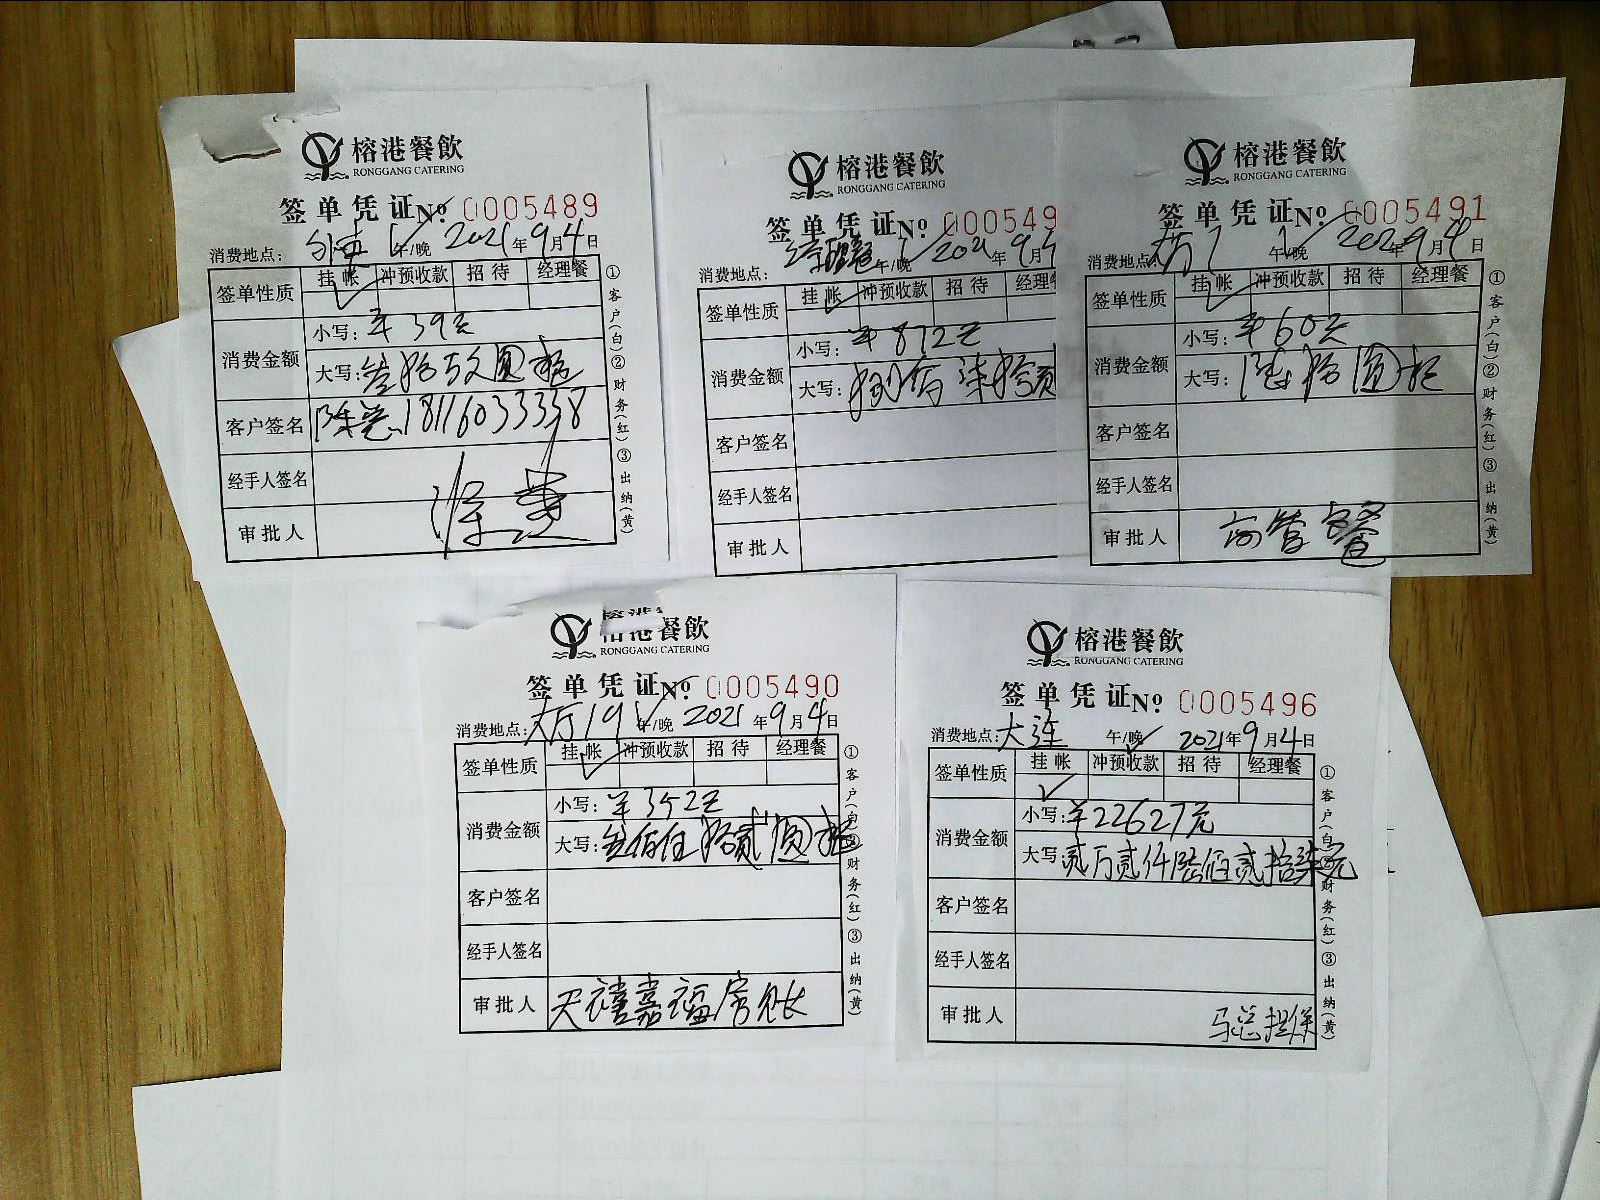 榕港餐飲
RONGGANG CATERING
签单凭证 No. 0005489
消费地点: 外卖 午/晚 2021年9月4日
签单性质 挂帐 冲预收款 招待 经理餐
消费金额 小写: ¥39元
大写: 叁拾玖圆整
客户签名 陈 18116033338
经手人签名
审批人
①客户(白)②财务(红)③出纳(黄)
榕港餐飲
RONGGANG CATERING
签单凭证 No. 000549
消费地点: 午/晚 2021年9月4
签单性质 挂帐 冲预收款 招待 经理
消费金额 小写: ¥872元
大写: 捌佰柒拾贰
客户签名
经手人签名
审批人
榕港餐飲
RONGGANG CATERING
签单凭证 No. 0005491
消费地点: 大厅7 午/晚 2021年9月4日
签单性质 挂帐 冲预收款 招待 经理餐
消费金额 小写: ¥60元
大写: 陆拾圆整
客户签名
经手人签名
审批人 高管餐
①客户(白)②财务(红)③出纳(黄)
榕港
榕港餐飲
RONGGANG CATERING
签单凭证 No. 0005490
消费地点: 大厅19 午/晚 2021年9月4日
签单性质 挂帐 冲预收款 招待 经理餐
消费金额 小写: ¥352元
大写: 叁佰伍拾贰圆整
客户签名
经手人签名
审批人 天禧嘉福房
①客户(白)②财务(红)③出纳(黄)
榕港餐飲
RONGGANG CATERING
签单凭证 No. 0005496
消费地点: 大连 午/晚 2021年9月4日
签单性质 挂帐 冲预收款 招待 经理餐
消费金额 小写: ¥22627元
大写 贰万贰仟陆佰贰拾柒元
客户签名
经手人签名
审批人 马总担保
①客户(白)②财务(红)③出纳(黄)